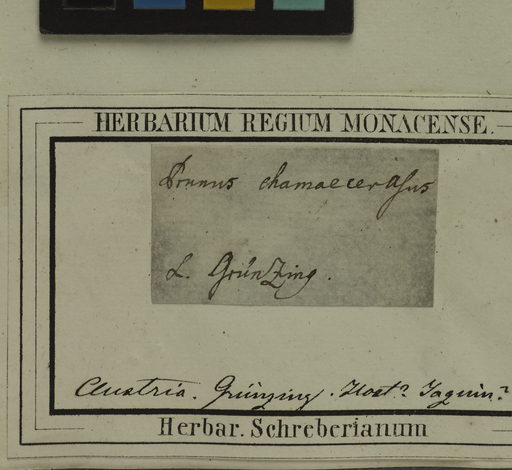 HERBARIUM REGIUM MONACENSE.
Prunus chamaecerasus
L. Grünzing.
Austria. Grünzing. Host? Jaquin?
Herbar. Schreberianum